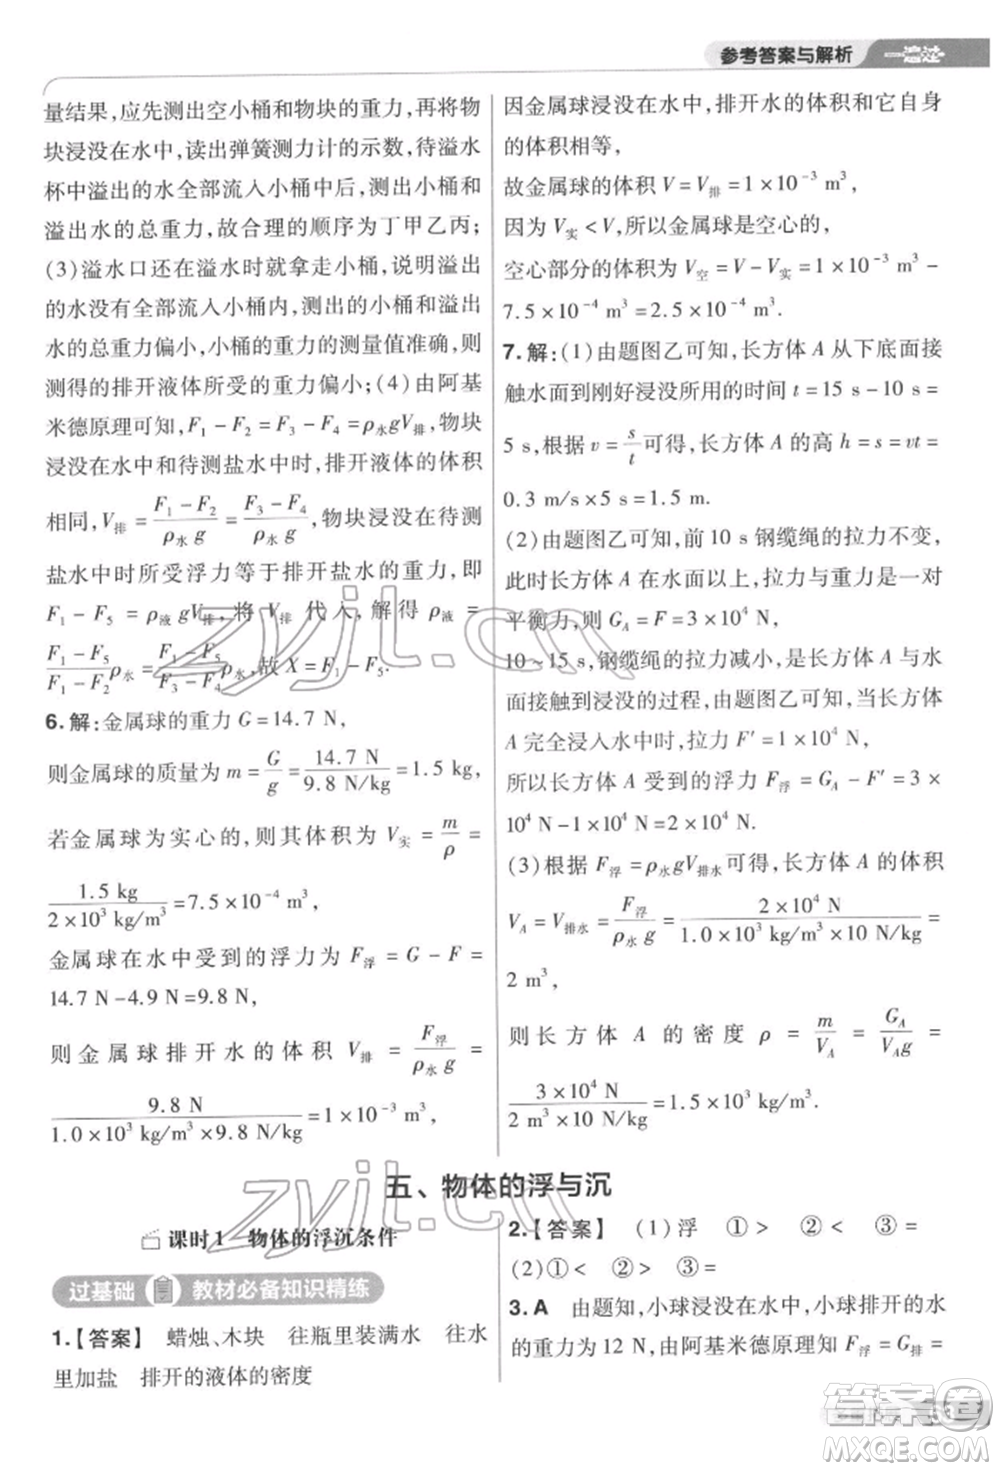 参考答案与解析 一遍过
量结果,应先测出空小桶和物块的重力,再将物
块浸没在水中,读出弹簧测力计的示数,待溢水
杯中溢出的水全部流入小桶中后,测出小桶和
溢出水的总重力,故合理的顺序为丁甲乙丙;
(3)溢水口还在溢水时就拿走小桶,说明溢出
的水没有全部流入小桶内,测出的小桶和溢出
水的总重力偏小,小桶的重力测量值准确,则
测得的排开液体所受的重力偏小;(4)由阿基
米德原理可知,F₁-F₂=F浮=ρ水gV排,物块
浸没在水中和待测盐水中时,排开液体的体积
相同,V排=(F₁-F₂)/(ρ水g)=(F₃-F₄)/(ρ水g),物块浸没在待测
盐水中时所受浮力等于排开盐水的重力,即
F₁-F₅=ρ液gV排,将V排代入,解得ρ液=
(F₁-F₅)/(F₁-F₂)ρ水=(F₁-F₅)/(F₃-F₄)ρ水,故X=F₁-F₅.
6.解:金属球的重力G=14.7 N,
则金属球的质量为m=G/g=14.7 N/9.8 N/kg=1.5 kg,
若金属球为实心的,则其体积为V实=m/ρ=
1.5 kg/2×10³ kg/m³=7.5×10⁻⁴ m³,
金属球在水中受到的浮力为F浮=G-F=
14.7 N-4.9 N=9.8 N,
则金属球排开水的体积V排=F浮/(ρ水g)=
9.8 N/(1.0×10³ kg/m³×9.8 N/kg)=1×10⁻³ m³,
因金属球浸没在水中,排开水的体积和它自身
的体积相等,
故金属球的体积V=V排=1×10⁻³ m³,
因为V实<V,所以金属球是空心的,
空心部分的体积为V空=V-V实=1×10⁻³ m³-
7.5×10⁻⁴ m³=2.5×10⁻⁴ m³.
7.解:(1)由题图乙可知,长方体A从下底面接
触水面到刚好浸没所用的时间t=15 s-10 s=
5 s,根据v=s/t可得,长方体A的高h=s=vt=
0.3 m/s×5 s=1.5 m.
(2)由题图乙可知,前10 s钢缆绳的拉力不变,
此时长方体A在水面以上,拉力与重力是一对
平衡力,则G_A=F=3×10⁴ N,
10~15 s,钢缆绳的拉力减小,是长方体A与水
面接触到浸没的过程,由题图乙可知,当长方体
A完全浸入水中时,拉力F′=1×10⁴ N,
所以长方体A受到的浮力F浮=G_A-F′=3×
10⁴ N-1×10⁴ N=2×10⁴ N.
(3)根据F浮=ρ水gV排水可得,长方体A的体积
V_A=V排水=F浮/(ρ水g)=2×10⁴ N/(1×10³ kg/m³×10 N/kg)=
2 m³,
则长方体A的密度ρ=m/V_A=G_A/(V_A g)=
3×10⁴ N/(2 m³×10 N/kg)=1.5×10³ kg/m³.
五、物体的浮与沉
课时1 物体的浮沉条件
过基础 教材必备知识精练
1.【答案】 蜡烛、木块 往瓶里装满水 往水
里加盐 排开的液体的密度
2.【答案】 (1)浮 ①> ②> ③=
(2)①< ②> ③=
3.A 由题知,小球浸没在水中,小球排开的水
的重力为12 N,由阿基米德原理知F浮=G排=
zyjl.cn
zyjl.cn
答案圈
MXQE.COM